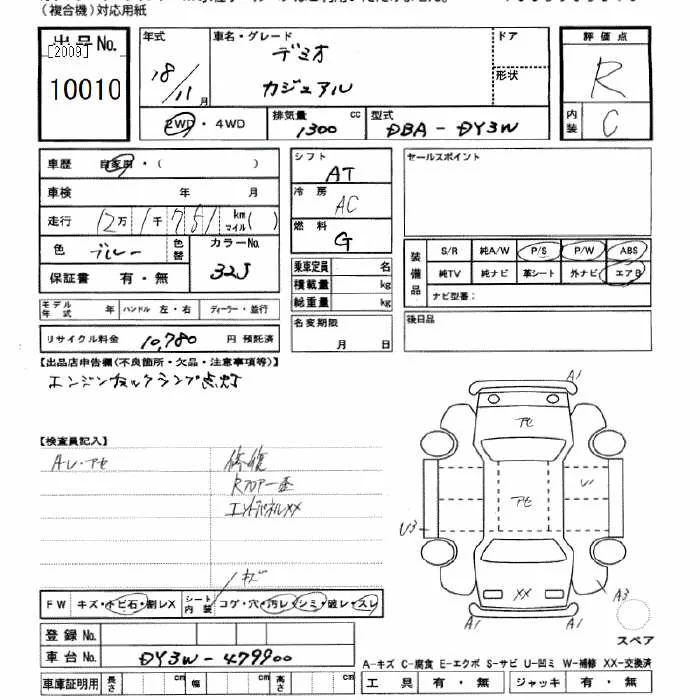 （複合機）対応用紙
出品No.
[2009]
10010
年式
18/11 月
車名・グレード
デミオ
カジュアル
ドア
形状
評価点
R
内装
C
2WD・4WD
排気量 1300 cc
型式 DBA - DY3W
車歴 自家用・( )
車検 年 月
走行 12万 1千 751 km マイル( )
色 ブルー
色替
カラーNo.
32J
保証書 有・無
モデル年式 年
ハンドル 左・右
ディーラー・並行
リサイクル料金 10,780 円 預託済
シフト
AT
冷房
AC
燃料
G
乗車定員 名
積載量 kg
総重量 kg
名変期限
月 日
セールスポイント
装備品
S/R 純A/W P/S P/W ABS
純TV 純ナビ 革シート 外ナビ エアB
ナビ型番：
後日品
【出品店申告欄(不良箇所・欠品・注意事項等)】
エンジンチェックランプ点灯
【検査員記入】
AU・アセ
修復
Rフロアー歪
エンドパネルXX
キズ
FW キズ・トビ石・割レX
シート内装 コゲ・穴・汚レ・シミ・破レ・スレ
登録No.
車台No. DY3W - 479900
車庫証明用 長さ cm 幅 cm 高さ cm
A1
アセ
アセ
U1
U3
XX
A3
A1
スペア
A-キズ C-腐食 E-エクボ S-サビ U-凹ミ W-補修 XX-交換済
工具 有・無 ジャッキ 有・無